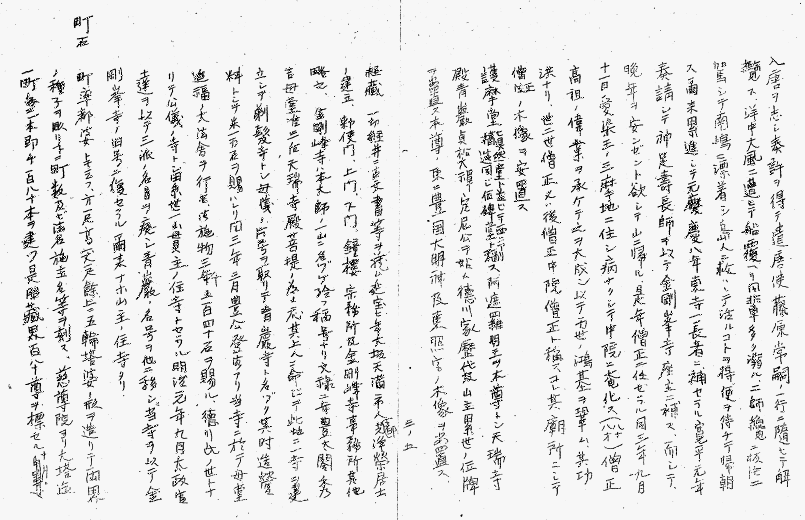 入唐ヲ志シ奏許ヲ得テ遣唐使藤原常嗣ノ一行ニ随ヒテ解
纜ス洋中大風ニ遭ヒテ船覆ヘリ同乗多ク溺ル二師
駕シテ南嶋ニ漂着シ島人ニ救ハレテ陸ルコトヲ得便ヲ得テ帰朝
ス爾来累進シテ元慶八年東寺一長者ニ補セラル寛平元年
奏請シテ神足壽長師ヲ以テ金剛峯寺座主ニ補ス、而シテ
晩年ヲ安セント欲シテ山ニ帰ル是年僧正ニ任セラル同三年九月
十一日愛染王ノ三摩地ニ住シ病ナクシテ中院ニ化ス僧正
高祖ノ偉業ヲ承ケテ之ヲ大成シ以テ万世ノ鴻基ヲ肇ム其功
洪ナリ、世ニ僧正又ハ後僧正中院僧正ト稱ス其廟所ニシテ
僧正ノ木像ヲ安置ス
護摩堂 四種明王ヲ本尊トシ天瑞寺
殿青巌貞松大禅定尼公ヲ始メ徳川家歴代及山主累世ノ位牌
ヲ安置ス本尊ノ東ニ豊国大明神及東照宮ノ木像ヲ安置ス
三ノ五
経蔵 一切経并古文書等ヲ蔵ス延宝七年大坂天満ノ人
ノ建立、勅使門、上門、下門、鐘樓、宗務所及金剛峰寺事務所其他
略之、金剛峰寺本大師ノ一山ニ名ツケ玲フ称号ナリ文禄二年豊太閤秀
吉母天瑞寺殿菩提ノ為メ其上人ニ命シテ此地ニ一寺ヲ建
立シテ剃髪寺トシ母儀ノ号ヲ取リテ青巌寺ト名ヅク其時造營
料トシテ米一万石ヲ賜ハリ同三年三月豊公登山アリ当寺ニ於テ母堂
追福ノ大法会ヲ行ヒ法施物三千五百四十石ヲ賜ル、徳川氏ノ世トナ
リテ公儀ノ寺ト累世一山貫主ノ住寺トセラル明治元年九月太政官
達ヲ以テ三派ノ名目ヲ廃シ青巌ノ名号ヲ他ニ移シ当寺ヲ以テ金
剛峯寺ノ旧号ニ復セラル爾来本山主ノ住寺ナリ
町石
町率都婆トモ云フ方尺高一丈餘ニシテ五輪塔婆ノ形ヲ造リテ両界
ノ種子ヲ彫リ町数及ヒ法名施主名等ヲ刻ス、慈尊院ヨリ大塔迄
一町毎ニ一本即チ百八十本ヲ建ツ是胎藏界百八十尊ヲ標セル